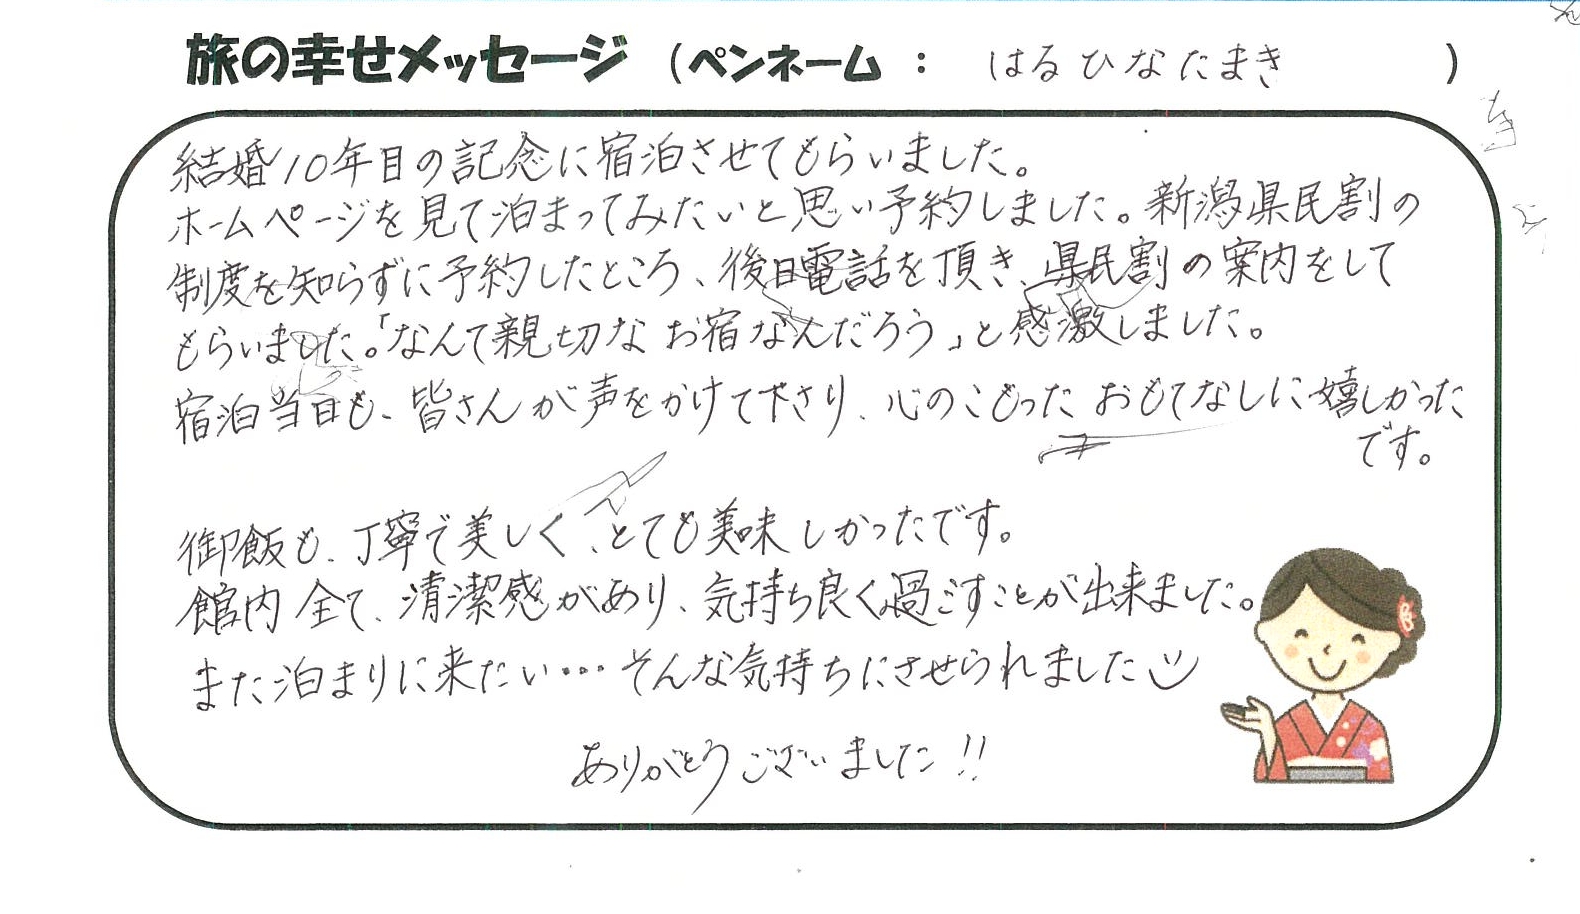 旅の幸せメッセージ (ペンネーム : はるひなたまき )
結婚10年目の記念に宿泊させてもらいました。
ホームページを見て泊まってみたいと思い予約しました。新潟県民割の
制度を知らずに予約したところ、後日電話を頂き、県民割の案内をして
もらいました。「なんて親切なお宿なんだろう」と感激しました。
宿泊当日も、皆さんが声をかけて下さり、心のこもったおもてなしに嬉しかった
です。
御飯も、丁寧で美しく、とても美味しかったです。
館内全て、清潔感があり、気持ち良く過ごすことが出来ました。
また泊まりに来たい…そんな気持ちにさせられました
ありがとうございました!!